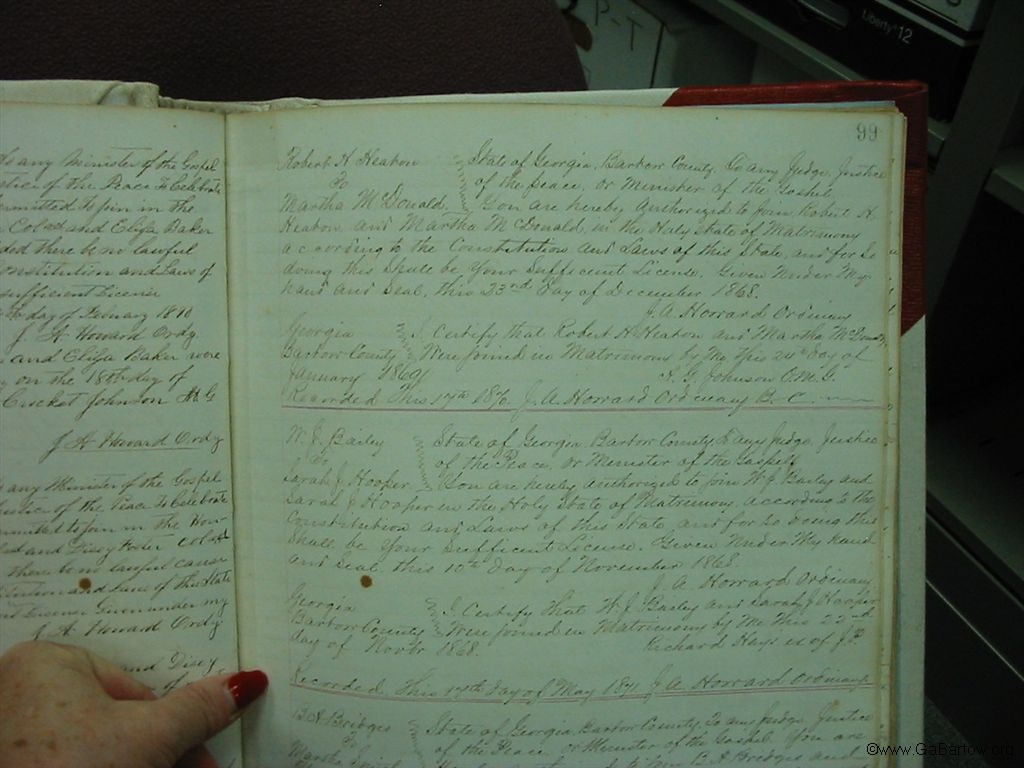 P-T
Liberty 12
any Minister of the Gospel
of the Peace To Celebrate
to join in the
Col and Eliza Baker
there be no lawful
and Laws of
sufficient License
day of February 1870
J. A. Howard Ordy.
and Eliza Baker were
on the 18th day of
Crocket Johnson M G
J A Howard Ordy
any Minister of the Gospel
of the Peace To Celebrate
to join in the Hon
and Dicey Foster Col
there be no lawful cause
and Laws of this State
License Given under my
J A Howard Ordy
and Dicey
of
99
Robert H Heaton State of Georgia, Bartow County To any Judge, Justice
To of the peace, or Minister of the Gospel
Martha McDonald You are hereby Authorized to Join Robert H.
Heaton and Martha McDonald, in the Holy State of Matrimony
according to the Constitution and Laws of this State, and for So
doing this Shall be Your Sufficient License. Given Under My
hand and Seal, this 23rd Day of December 1868.
J. A. Howard Ordinary
Georgia I Certify that Robert H Heaton and Martha McDonald
Bartow County Were joined in Matrimony by Me this 24th day of
January 1869
A. G. Johnson O.M.G.
Recorded This 17th J. A. Howard Ordinary B C
W. J. Bailey State of Georgia Bartow County To any Judge, Justice
To of the Peace, or Minister of the Gospell
Sarah J Hooper You are hereby authorized to join W J Bailey and
Sarah J Hooper in the Holy State of Matrimony, according to the
Constitution and Laws of this State and for So Doing this
Shall be Your Sufficient License. Given Under My hand
and Seal, this 10th Day of November 1868.
J. A. Howard Ordinary
Georgia I Certify that W. J. Bailey and Sarah J Hooper
Bartow County Were joined in Matrimony by Me This 22nd
day of Novbr 1868. Richard Hays J.P.
Recorded This 17th Day of May 1871 J A Howard Ordinary
B A Bridges State of Georgia Bartow County To any Judge Justice
To of the Peace or Minister of the Gospel. You are
B A Bridges and
©www.GaBartow.org